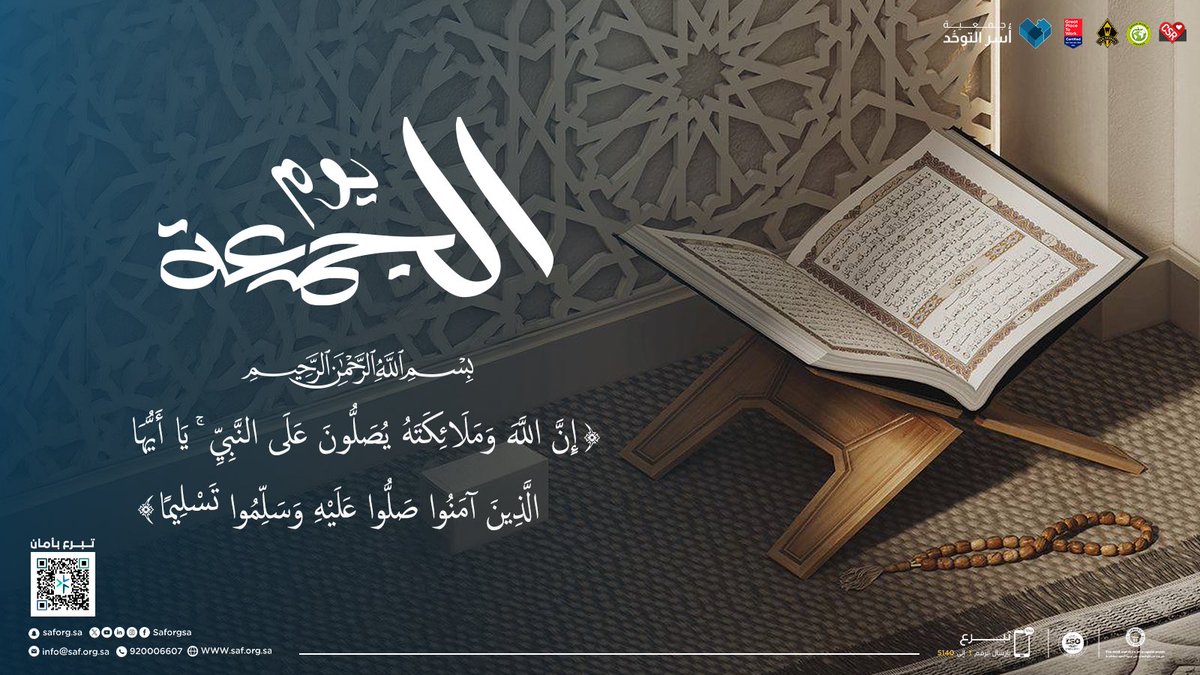 جمعية
أسر التوحد
Great
Place
To
Work
Certified
CSR
يوم
الجمعة
بِسْمِ ٱللَّهِ ٱلرَّحْمَٰنِ ٱلرَّحِيمِ
﴿إِنَّ اللَّهَ وَمَلَائِكَتَهُ يُصَلُّونَ عَلَى النَّبِيِّ ۚ يَا أَيُّهَا
الَّذِينَ آمَنُوا صَلُّوا عَلَيْهِ وَسَلِّمُوا تَسْلِيمًا﴾
تبرع بأمان
saforg.sa Saforgsa
info@saf.org.sa 920006607 WWW.saf.org.sa
تبرع
بإرسال الرقم 1 إلى 5140
ISO